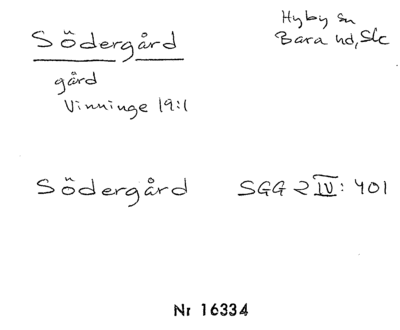 Södergård
Hyby sn
Bara hd, Sk
gård
Vinninge 19:1
Södergård SGG 2 IV: 401
Nr 16334